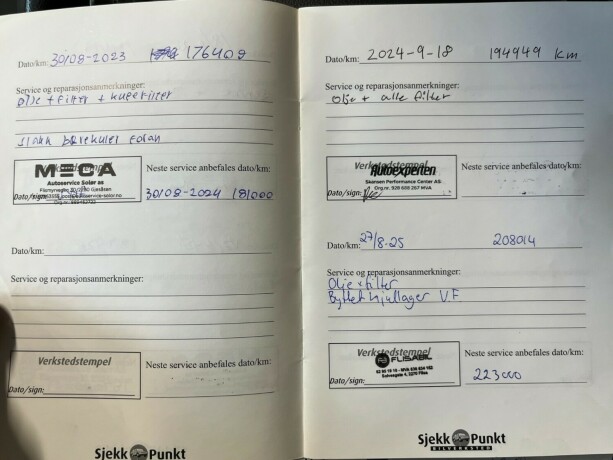 Dato/km: 30/08-2023 176409
Service og reparasjonsanmerkninger:
olje + filter + kupefilter
slakk bærekuler foran
Verkstedstempel
MECA
Autoservice Solør as
Dato/sign:
Neste service anbefales dato/km:
30/08-2024 181000
Dato/km:
Service og reparasjonsanmerkninger:
Verkstedstempel
Dato/sign:
Neste service anbefales dato/km:
Sjekk Punkt
Dato/km: 2024-9-18 194949 km
Service og reparasjonsanmerkninger:
Olje + alle filter
Verkstedstempel
Autoexperten
Skansen Performance Center AS
Org.nr. 928 688 267 MVA
Dato/sign:
Neste service anbefales dato/km:
Dato/km: 27/8-25 208014
Service og reparasjonsanmerkninger:
Olje + filter
Byttet hjullager V.F
Verkstedstempel
FLISABIL
Dato/sign:
Neste service anbefales dato/km:
223000
Sjekk Punkt
BILVERKSTED